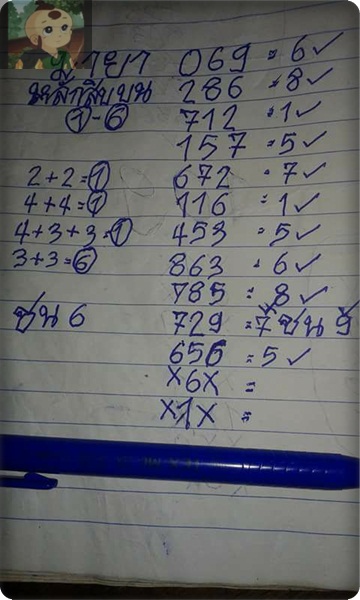 069 = 6✓
หลักสิบบน 286 = 8✓
①-⑥ 712 = 1✓
157 = 5✓
2+2=① 672 = 7✓
4+4=① 116 = 1✓
4+3+3=① 453 = 5✓
3+3=⑥ 863 = 6✓
785 = 8✓
ชน 6 729 = 7 ชน 9
656 = 5✓
x6x =
x1x =